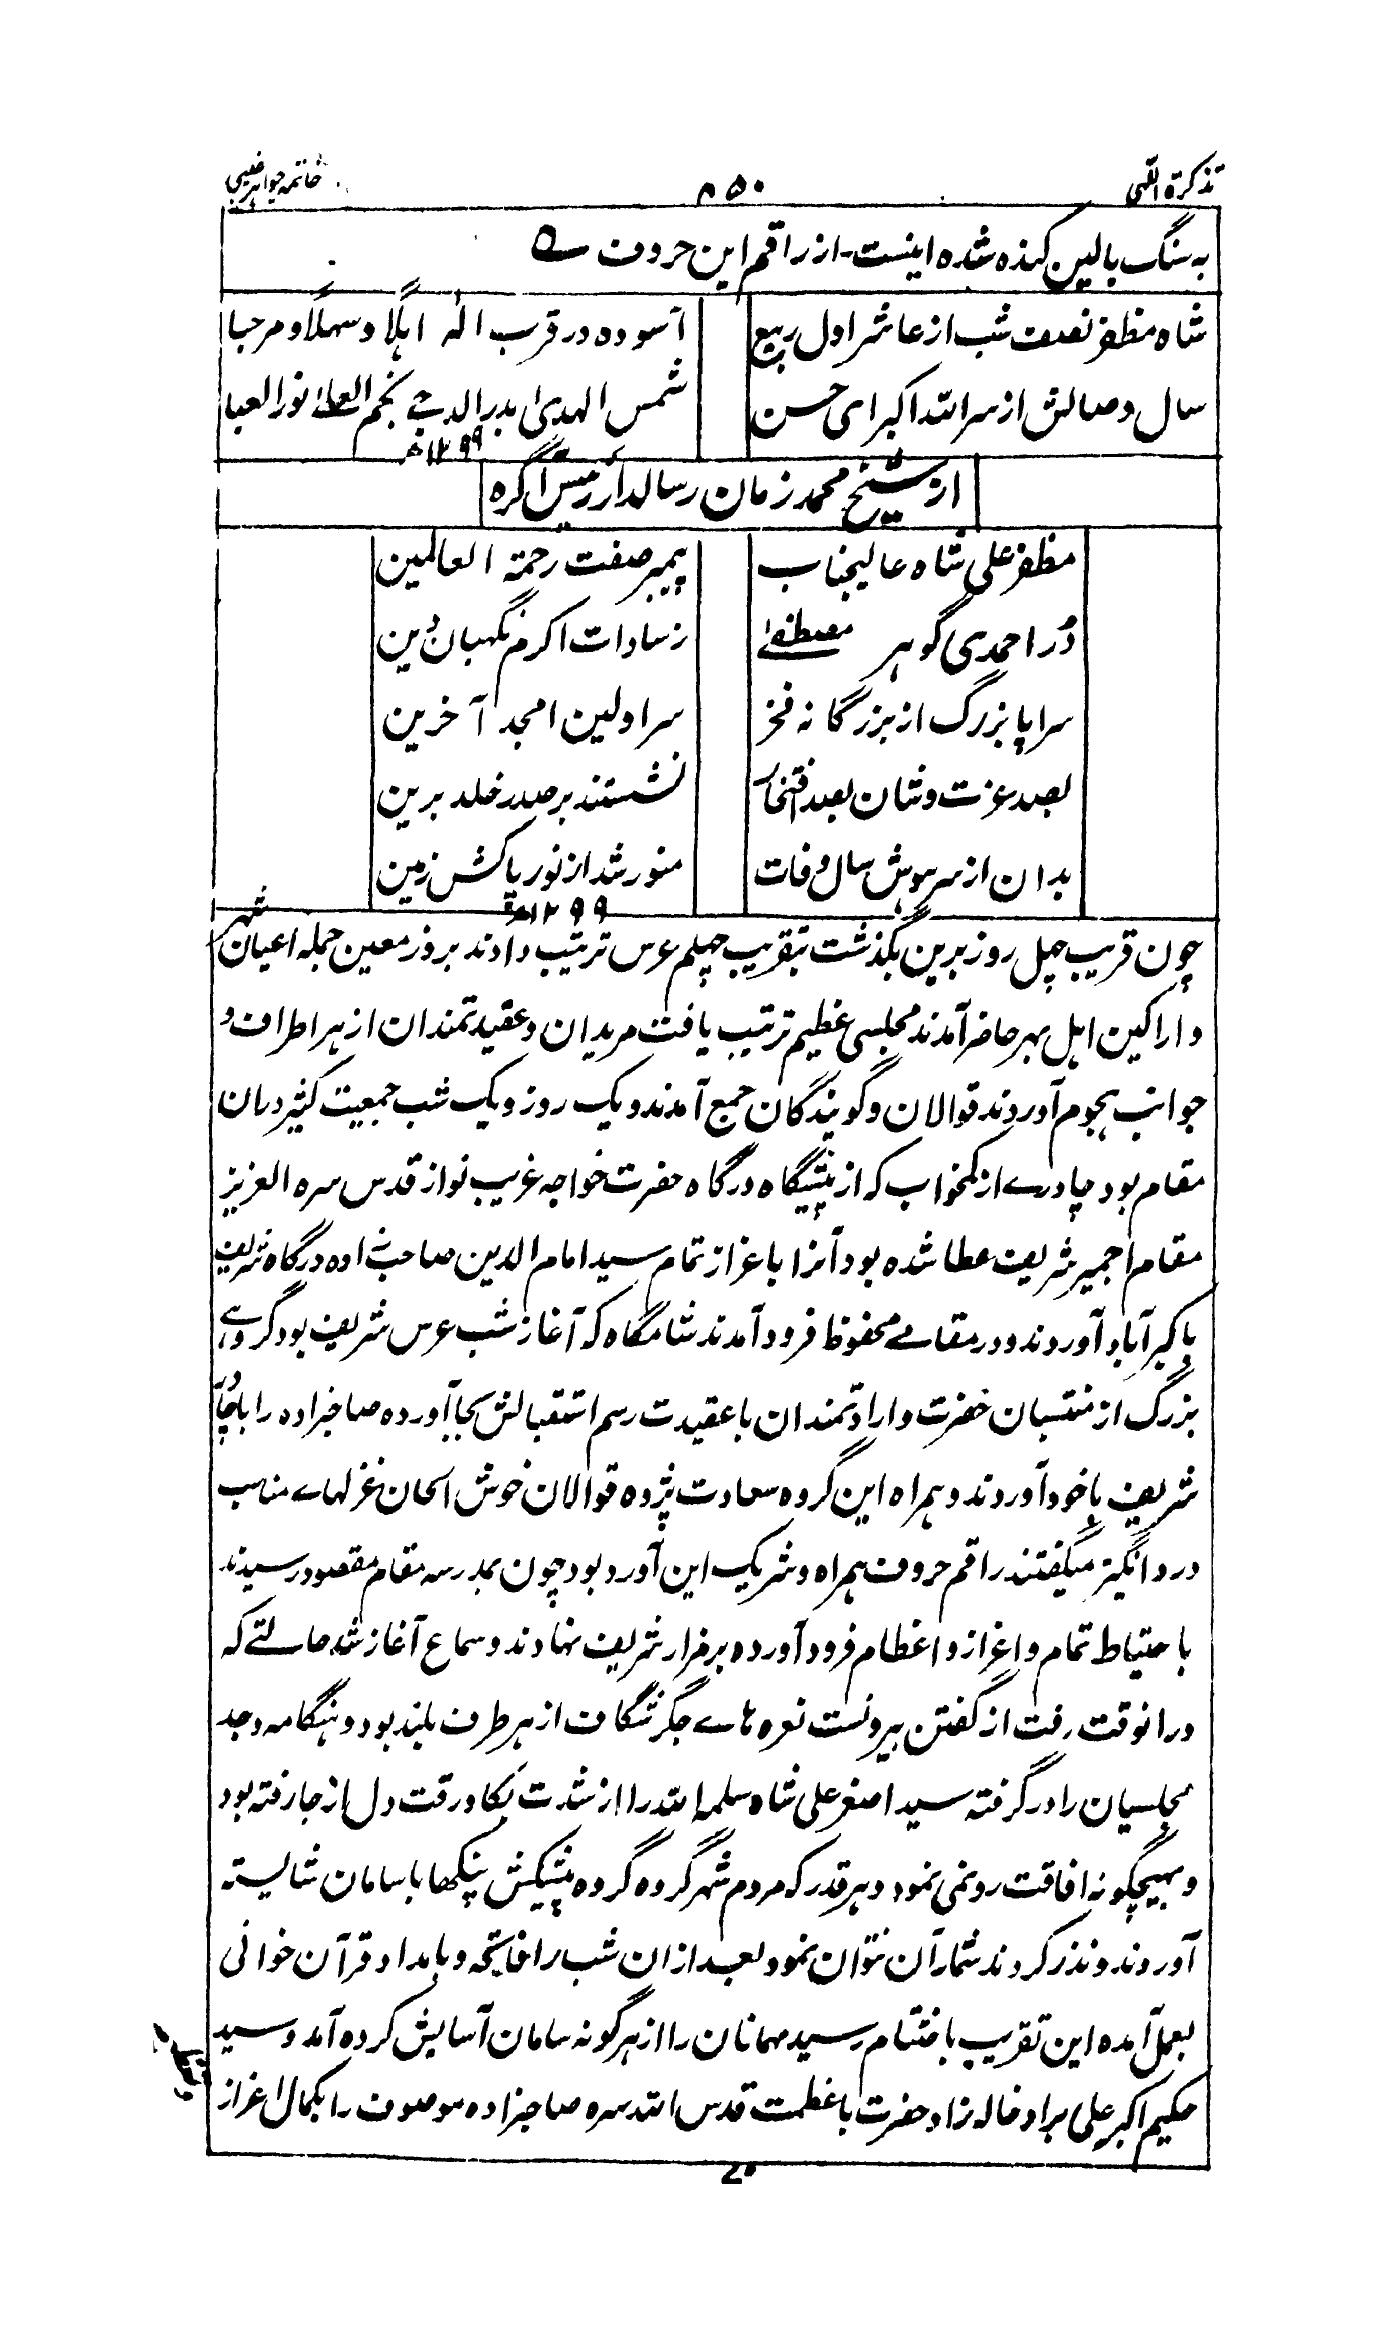 تذکرة القی
۵۰۸
خاتمه جواهر غیبی
به سنگ بالین کنده شده اینست۔ از راقم این حروف ے
شاه مظفر نصف شب از عاشر اول ربیع
آسوده در قرب اله اہلًا و سہلًا و مرحبا
سال وصالش از سر الله اکبر ای حسن
شمس الهدیٰ بدر الدجے نجم العلےٰ نور العبا
۱۲۹۹ھ
از شیخ محمد زمان رسالدار رئیس آگره
مظفر علی شاه عالیجناب
پیمبر صفت رحمة العالمین
دُر احمدی گوہر مصطفےٰ
ز سادات اکرم نگهبان دین
سراپا بزرگ از بزرگانه فخر
سر اولین امجد آخرین
بصد عزت و شان بصد افتخار
نشستند بر صدر خلد برین
بدان از سر ہوش سال وفات
منور شد از نور پاکش زمین
۱۲۹۹ھ
چون قریب چهل روز برین بگذشت بتقریب چهلم عرس ترتیب دادند بروز معین جمله اعیان شہر
و اراکین اہل بهر حاضر آمدند مجلسی عظیم ترتیب یافت مریدان و عقیدتمندان از ہر اطراف و
جوانب ہجوم آوردند قوالان و گویندگان جمع آمدند و یک روز و یک شب جمعیت کثیر دران
مقام بود چادرے از کمخواب که از پیشگاه درگاه حضرت خواجه غریب نواز قدس سره العزیز
مقام اجمیر شریف عطا شده بود آنرا باعزاز تمام سید امام الدین صاحبزاده درگاه شریف
باکبر آباد آوردند و در مقامے محفوظ فرود آمدند شامگاه که آغاز شب عرس شریف بود گروہے
بزرگ از منتسبان حضرت و ارادتمندان با عقیدت رسم استقبالش بجا آورده صاحبزاده را با چادر
شریف با خود آوردند و ہمراه این گروه سعادت پژوه قوالان خوش الحان غزلهاے مناسب
درد انگیز میگفتند راقم حروف ہمراه و شریک این آورد بود چون بمدرسه مقام مقصود رسیدند
باحتیاط تمام و اعزاز و اعظام فرود آورده بر مزار شریف نہادند و سماع آغاز شد حالتے که
درانوقت رفت از گفتن بیرونست نعره ہاے جگر شگاف از ہر طرف بلند بود و ہنگامه وجد
مجلسیان را در گرفته سید اصغر علی شاه سلمه الله را از شدت بکا و رقت دل از جا رفته بود
و بہیچگونه افاقت رو نمی نمود و ہر قدر که مردم شہر گروه گروه پیشکش پنکھا با سامان شایسته
آوردند و نذر کردند شمار آن نتوان نمود بعد ازان شب را فاتحه و بامداد قرآن خوانی
بعمل آمده این تقریب باختتام رسید مہمانان را از ہر گونه سامان آسایش کرده آمد و سید
حکیم اکبر علی برادر خاله زاد حضرت باعظمت قدس الله سره صاحبزاده موصوف را بکمال اعزاز